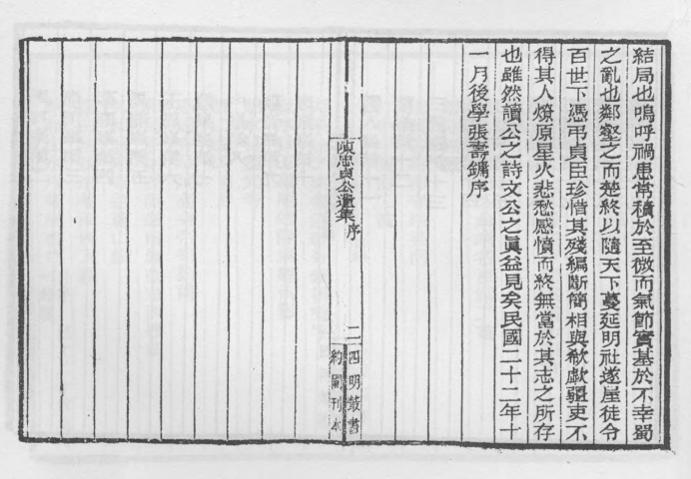 結局也嗚呼禍患常積於至微而氣節實基於不幸蜀
之亂也鄰壑之而楚終以隨天下蔓延明社遂屋徒令
百世下憑弔貞臣珍惜其殘編斷簡相與欷歔疆吏不
得其人燎原星火悲愁感憤而終無當於其志之所存
也雖然讀公之詩文公之眞益見矣民國二十二年十
一月後學張壽鏞序
陳忠貞公遺集 序
二
四明叢書
約園刊本